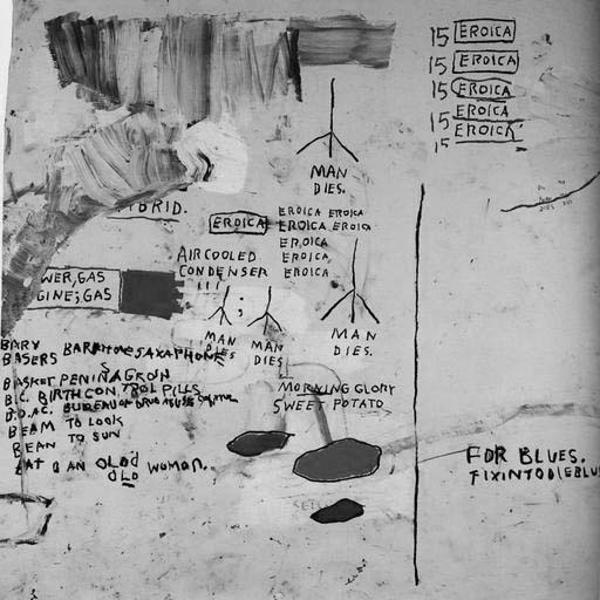 15 EROICA
15 EROICA
15 EROICA
15 EROICA
15 EROICA
MAN
DIES.
EROICA
EROICA EROICA
EROICA EROICA
EROICA
EROICA,
EROICA
AIRCOOLED
CONDENSER
WER, GAS
GINE; GAS
MAN
DIES
MAN
DIES
MAN
DIES.
BARY
BASERS BARITONE SAXAPHONE
BASKET PENINAGROIN
B.C. BIRTHCONTROL PILLS
B.D.A.C. BUREAU OF DRUG ABUSE CONTROL
BEAM TO LOOK
BEAN TO SUN
BAT AN OLD
OLD WOMAN.
MORNING GLORY
SWEET POTATO
FOR BLUES.
FIXINTODIEBLUE